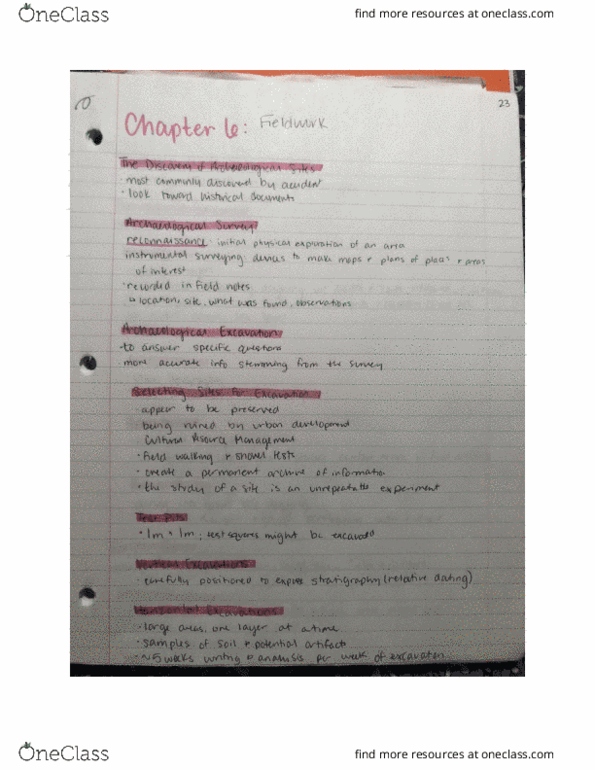 OneClass
find more resources at oneclass.com
23
Chapter 6: Fieldwork
The Discovery of Archaeological Sites
· most commonly discovered by accident
· look toward historical documents
Archaeological Survey
reconnaissance: initial physical exploration of an area
instrumental surveying: devices to make maps + plans of places + areas
of interest
· recorded in field notes
location, site, what was found, observations
Archaeological Excavation
· to answer specific questions
· more accurate info stemming from the survey
Selecting Sites for Excavation
appear to be preserved
being ruined by urban development
Cultural Resource Management
· field walking + shovel tests
· create a permanent archive of information
· the study of a site is an unrepeatable experiment
Test Pits
· 1m + 1m; test squares might be excavated
Vertical Excavations
· carefully positioned to expose stratigraphy (relative dating)
Horizontal Excavations
· large areas, one layer at a time
· samples of soil + potential artifacts
· ~5 weeks writing + analysis per week of excavation
OneClass
find more resources at oneclass.com